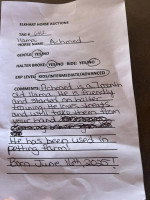 ELKHART HORSE AUCTIONS
TAG #
Llama
HORSE NAME: Achmed
GENTLE: YES/NO
HALTER BROKE: YES/NO RIDE: YES/NO
EXP LEVEL: KIDS/INTERMEDIATE/ADVANCED
COMMENTS: Achmed is a 1 month
old llama. He is friendly
and started on halter
training. He loves treats
and will take them from
your hand
He has been used in
petting farm!
Born June 16th 2025!